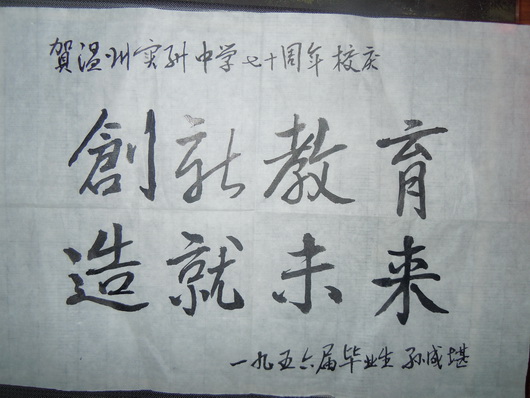 賀温州实验中学七十周年校庆
創新教育
造就未来
一九五六届毕业生 孙成堪